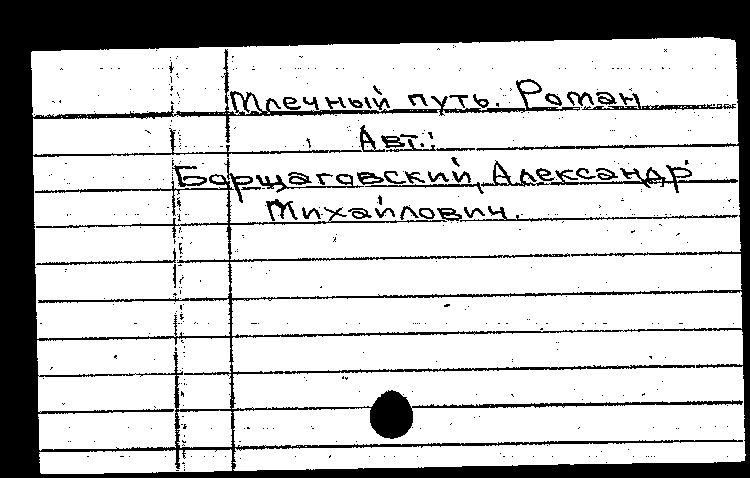 Млечный путь. Роман
Авт.:
Борщаговский, Александр
Михайлович.